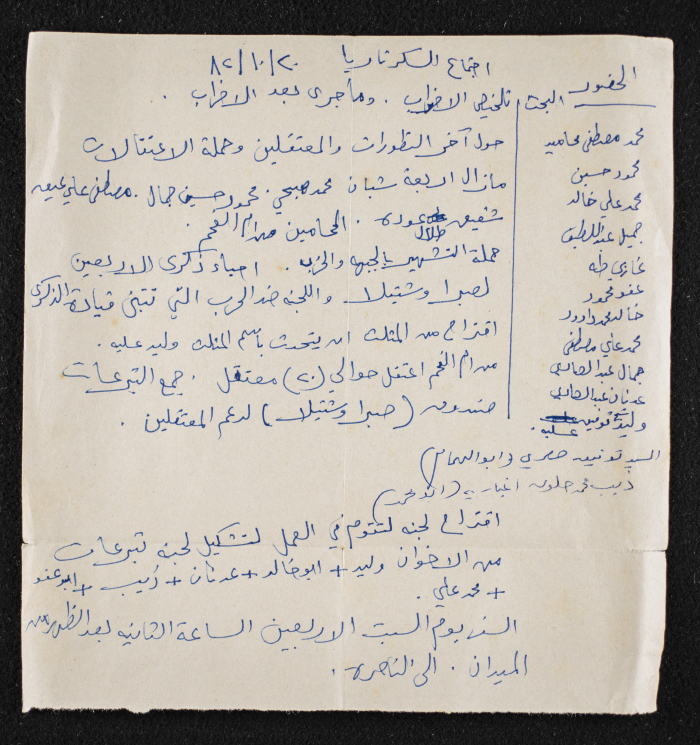 اجتماع السكرتاريا ٨٢/١٠/٢٠
الحضور
البحث تلخيص الاضراب . وماجرى بعد الاضراب .
حول آخر التطورات والمعتقلين وحملة الاعتقالات
مازال اربعة شبان محمد صبحي . محمود حسين جمال . مصطفى علي
شفيق طلال عودة . المحامين من ام الفحم .
حملة التشهير بالجبهه والحزب . احياء ذكرى الاربعين
لصبرا وشتيلا . واللجنه ضد الحرب التي تتبنى قيادة الذكرى
اقتراح من المثلث ان يتحدث بأسم المثلث وليد عليه .
من ام الفحم اعتقل حوالي (٢٠) معتقل . جمع التبرعات
صندوق (صبرا وشتيلا) لدعم المعتقلين .
محمد مصطفى محاميد
محمود حسين
محمد علي خالد
جميل عبد اللطيف
غازي طه
عفو محمود
خالد محمد داوود
محمد علي مصطفى
جمال عبد الهادي
عدنان عبد الهادي
وليد توفيق
السيد توفيق
ذيب محمد
اقتراح لجنه لتقوم في العمل لتشكيل لجنه تبرعات
من الاخوان وليد + ابو خالد + عدنان + ذيب + ابو عفو
+ محمد علي .
السفر يوم السبت الاربعين الساعة الثانيه بعد الظهر من
الميدان . الى الناصرة .